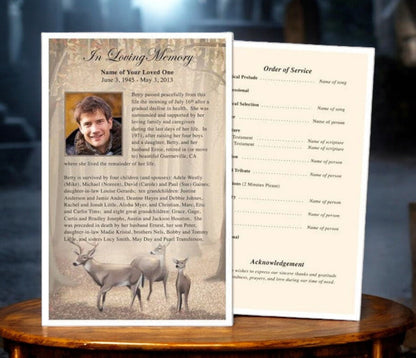 In Loving Memory
Name of Your Loved One
June 3, 1945 - May 3, 2013
Betty passed peacefully from this
life the morning of July 16th after a
gradual decline in health. She was
surrounded and supported by her
loving family and caregivers
during the last days of her life. In
1975, after raising her four boys
and a daughter, Betty, and her
husband Ernie, retired in (or move
to) beautiful Guerneville, CA
where she lived the remainder of her life.
Betty is survived by four children (and spouses): Adele Weelly
(Mike), Michael (Noreen), David (Carole) and Paul (Sue) Gaines;
daughter-in-law Louise Gerards; six grandchildren: Justine
Anderson and Jamie Ander, Deanne Hayes and Debbie Johnes,
Rachel and Jonah Little, Alisha Myer, and Christian, Marc, Eric
and Carlin Tims; and eight great grandchildren; Grace, Gage,
Curtis and Bradley Josephs, Austin and Zachary Scott. She
was preceded in death by her husband Ernest, her son Peter,
daughter-in-law Madie Kristal, brothers Nels, Bobby and Tommy
Little, and sisters Lucy Smith, May Day and Pearl Transferson.
Order of Service
ical Prelude Name of song
essional
al Selection Name of song
ure
Testament Name of scripture
Testament Name of scripture
Name of person
Name of person
l Tribute Name of person
ions (2 Minutes Please)
Name of song
Name of person
Name of person
Name of person
Acknowledgement
wishes to express our sincere thanks and gratitude
kindness, prayers, and love during our time of need.